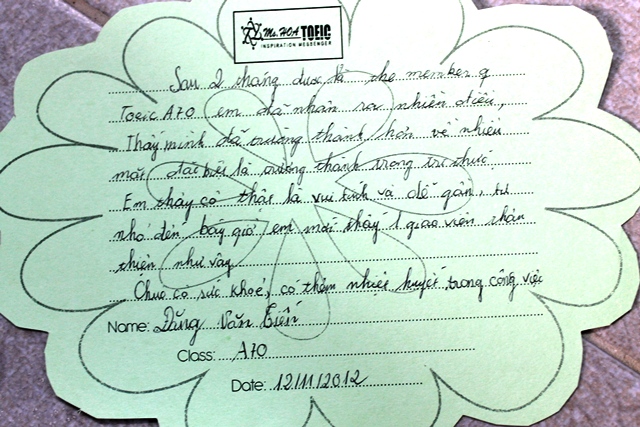 Ms. HOA TOEIC
INSPIRATION MESSENGER
Sau 2 tháng được là the member of
Toeic A70 em đã nhận ra nhiều điều,
Thấy mình đã trưởng thành hơn về nhiều
mặt đặc biệt là trưởng thành trong tri thức.
Em thấy cô thật là vui tính và dễ gần, từ
nhỏ đến bây giờ em mới thấy 1 giáo viên thân
thiện như vậy
Chúc cô sức khoẻ, có thêm nhiệt huyết trong công việc
Name: Đặng Văn
Class: A70
Date: 12/11/2012